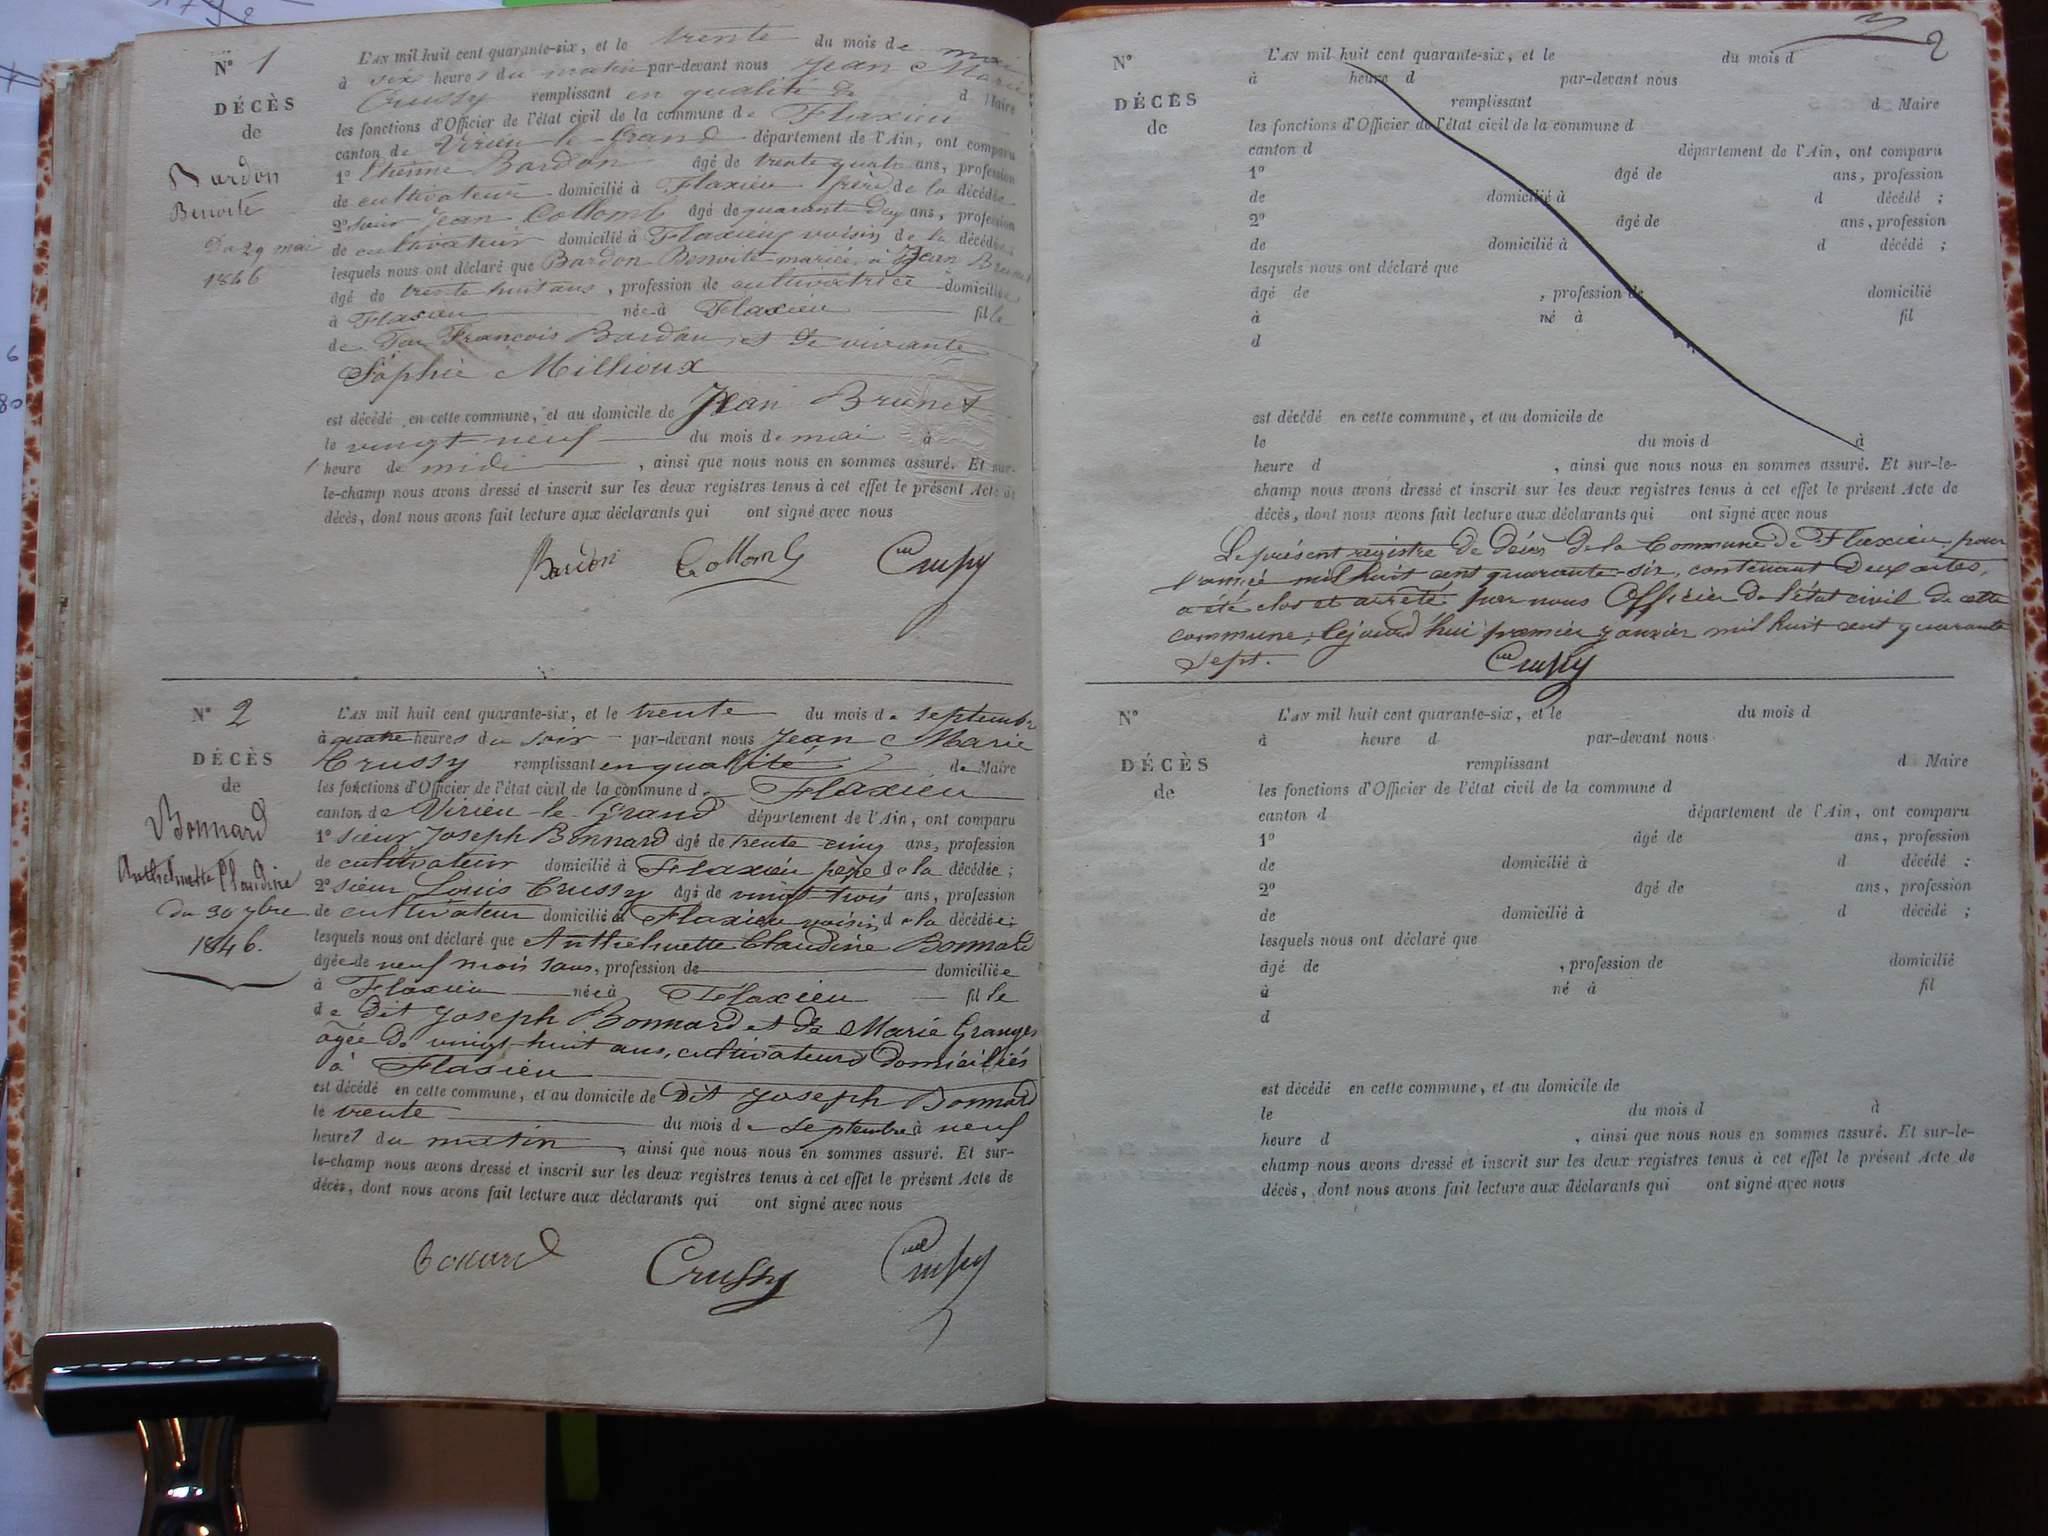 N° 1
DÉCÈS
de
Bardon
Benoite
Du 29 mai
1846
L'AN mil huit cent quarante-six, et le trente du mois de mai
à six heures du matin par-devant nous Jean Marie
Crussy remplissant en qualité de d Maire
les fonctions d'Officier de l'état civil de la commune de Flaxieu
canton de Virieu le Grand département de l'Ain, ont comparu
1° Etienne Bardon âgé de trente quatre ans, profession
de cultivateur domicilié à Flaxieu frère de la décédée
2° sieur Jean Collomb âgé de quarante deux ans, profession
de cultivateur domicilié à Flaxieu voisin de la décédée
lesquels nous ont déclaré que Bardon Benoite mariée à Jean Brunet
âgé de trente huit ans, profession de cultivatrice domiciliée
à Flaxieu née à Flaxieu fille
de feu François Bardon et de vivante
Sophie Millioux
est décédé en cette commune, et au domicile de Jean Brunet
le vingt neuf du mois de mai à
heure de midi, ainsi que nous nous en sommes assuré. Et sur-
le-champ nous avons dressé et inscrit sur les deux registres tenus à cet effet le présent Acte de
décès, dont nous avons fait lecture aux déclarants qui ont signé avec nous
Bardon Collomb Crussy
N° 2
DÉCÈS
de
Bonnard
Anthelmette Claudine
du 30 7bre
1846.
L'AN mil huit cent quarante-six, et le trente du mois de septembre
à quatre heures du soir par-devant nous Jean Marie
Crussy remplissant en qualité de Maire
les fonctions d'Officier de l'état civil de la commune de Flaxieu
canton de Virieu-le-Grand département de l'Ain, ont comparu
1° sieur Joseph Bonnard âgé de trente-cinq ans, profession
de cultivateur domicilié à Flaxieu père de la décédée ;
2° sieur Louis Crussy âgé de vingt-trois ans, profession
de cultivateur domicilié à Flaxieu voisin de la décédée ;
lesquels nous ont déclaré que Anthelmette Claudine Bonnard
âgée de neuf mois sans, profession de domiciliée
à Flaxieu née à Flaxieu fille
de dit Joseph Bonnard et de Marie Granger
agée de vingt-huit ans, cultivateurs domiciliés
à Flaxieu
est décédé en cette commune, et au domicile de dit Joseph Bonnard
le trente du mois de septembre à neuf
heures du matin, ainsi que nous nous en sommes assuré. Et sur-
le-champ nous avons dressé et inscrit sur les deux registres tenus à cet effet le présent Acte de
décès, dont nous avons fait lecture aux déclarants qui ont signé avec nous
Bonard Crussy Crussy
2
N°
DÉCÈS
de
L'AN mil huit cent quarante-six, et le du mois d
à heure d par-devant nous
remplissant d Maire
les fonctions d'Officier de l'état civil de la commune d
canton d département de l'Ain, ont comparu
1° âgé de ans, profession
de domicilié à d décédé ;
2° âgé de ans, profession
de domicilié à d décédé ;
lesquels nous ont déclaré que
âgé de , profession de domicilié
à né à fil
d
est décédé en cette commune, et au domicile de
le du mois d à
heure d , ainsi que nous nous en sommes assuré. Et sur-le-
champ nous avons dressé et inscrit sur les deux registres tenus à cet effet le présent Acte de
décès, dont nous avons fait lecture aux déclarants qui ont signé avec nous
Le présent registre de décès de la Commune de Flaxieu, pour
l'année mil huit cent quarante-six, contenant deux actes,
a été clos et arrêté par nous Officier de l'état civil de cette
commune, cejourd'hui premier janvier mil huit cent quarante
sept. Crussy
N°
DÉCÈS
de
L'AN mil huit cent quarante-six, et le du mois d
à heure d par-devant nous
remplissant d Maire
les fonctions d'Officier de l'état civil de la commune d
canton d département de l'Ain, ont comparu
1° âgé de ans, profession
de domicilié à d décédé :
2° âgé de ans, profession
de domicilié à d décédé ;
lesquels nous ont déclaré que
âgé de , profession de domicilié
à né à fil
d
est décédé en cette commune, et au domicile de
le du mois d à
heure d , ainsi que nous nous en sommes assuré. Et sur-le-
champ nous avons dressé et inscrit sur les deux registres tenus à cet effet le présent Acte de
décès, dont nous avons fait lecture aux déclarants qui ont signé avec nous